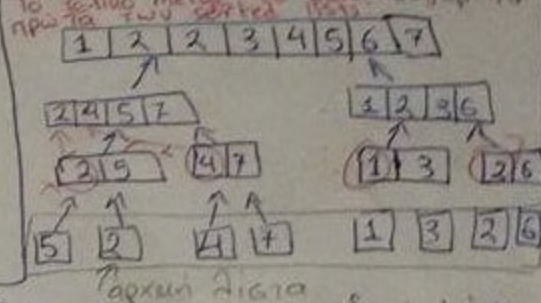 πρώτα των sorted
1 2 2 3 4 5 6 7
2 4 5 7 1 2 3 6
2 5 4 7 1 3 2 6
5 2 4 7 1 3 2 6
αρχική λίστα